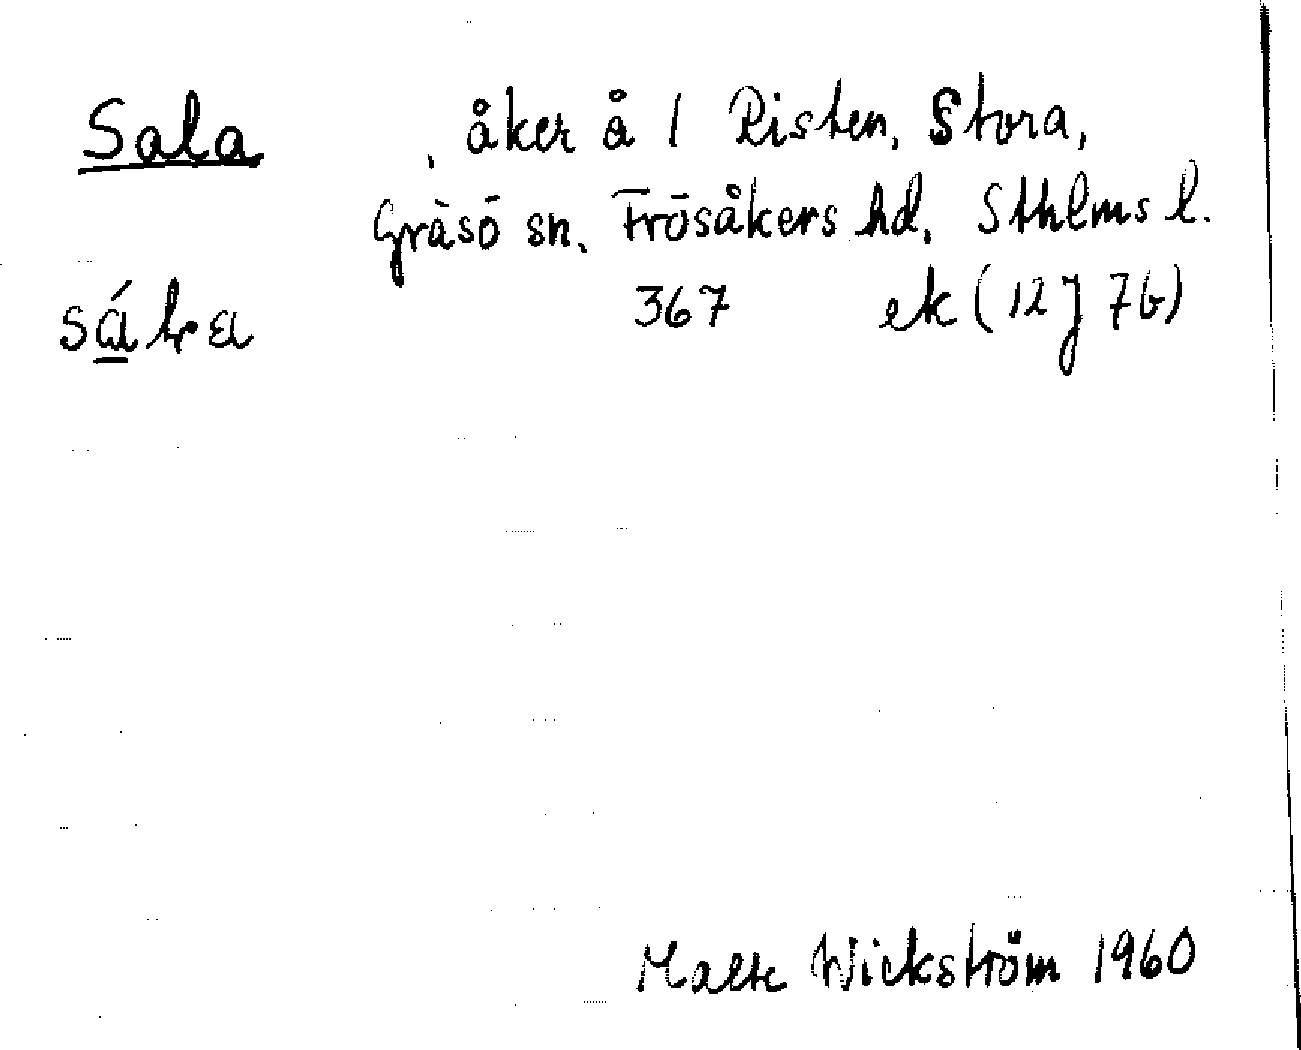 Sala , åker å 1 Risten, Stora,
Gräsö sn. Frösåkers hd. Sthlms l.
367 ek (12J 7b)
Malte Wickström 1960